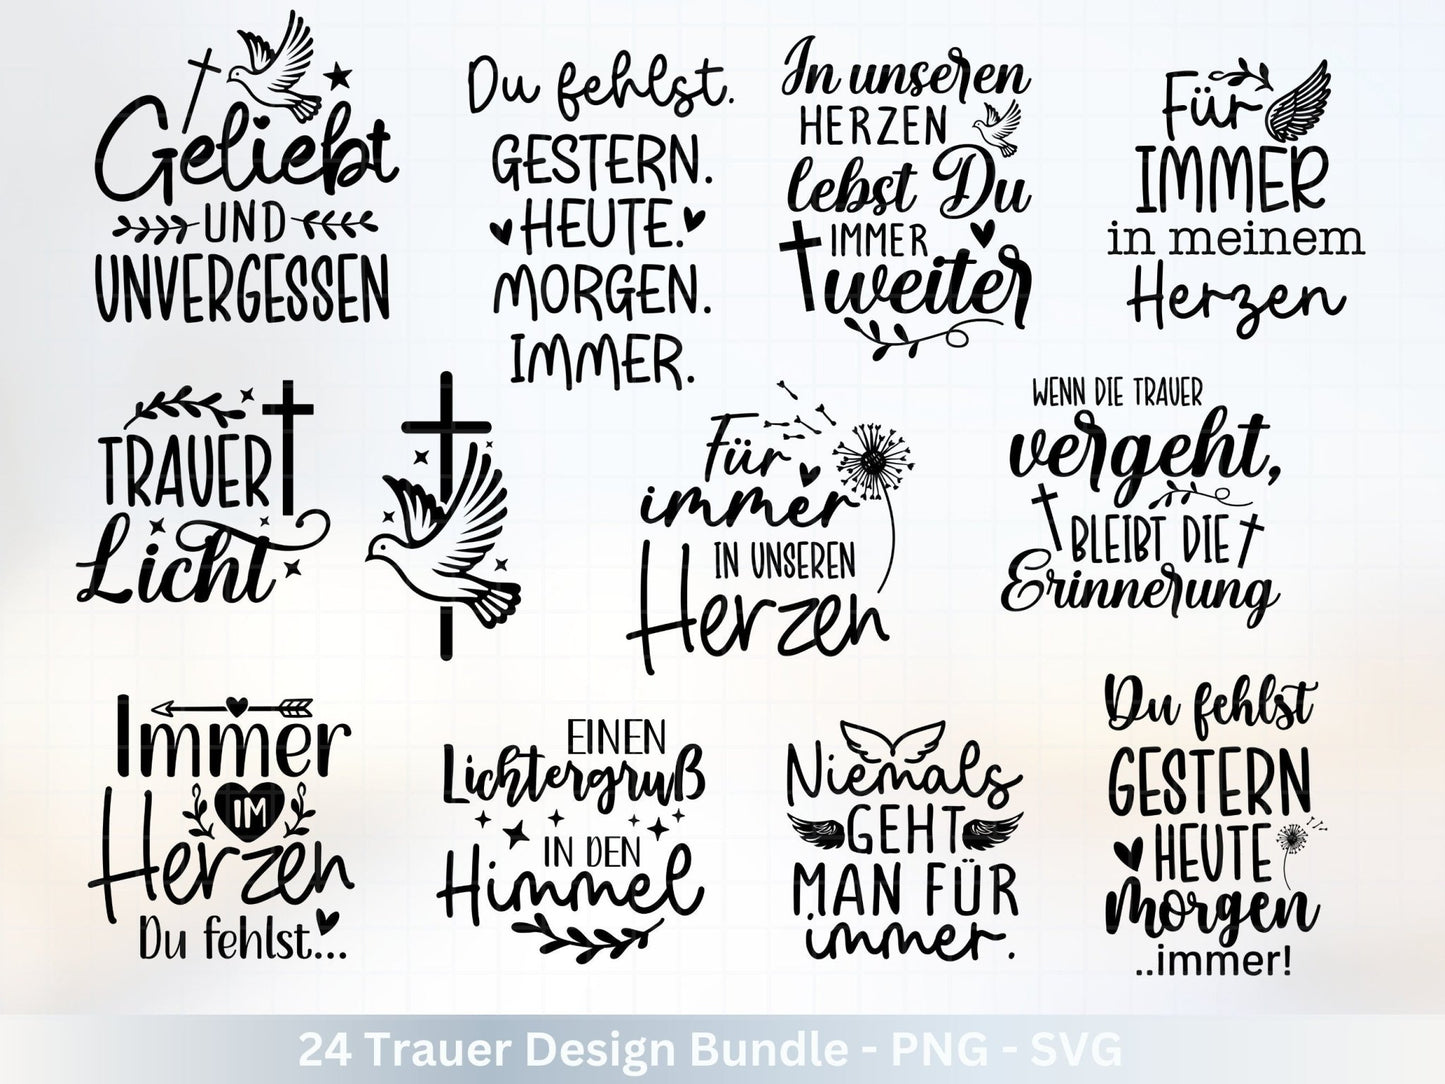 Geliebt
UND
UNVERGESSEN
Du fehlst.
GESTERN.
HEUTE.
MORGEN.
IMMER.
In unseren
HERZEN
lebst Du
IMMER
weiter
Für
IMMER
in meinem
Herzen
TRAUER
Licht
Für
immer
IN UNSEREN
Herzen
WENN DIE TRAUER
vergeht,
BLEIBT DIE
Erinnerung
Immer
IM
Herzen
Du fehlst...
EINEN
Lichtergruß
IN DEN
Himmel
Niemals
GEHT
MAN FÜR
immer.
Du fehlst
GESTERN
HEUTE
Morgen
..immer!
24 Trauer Design Bundle - PNG - SVG